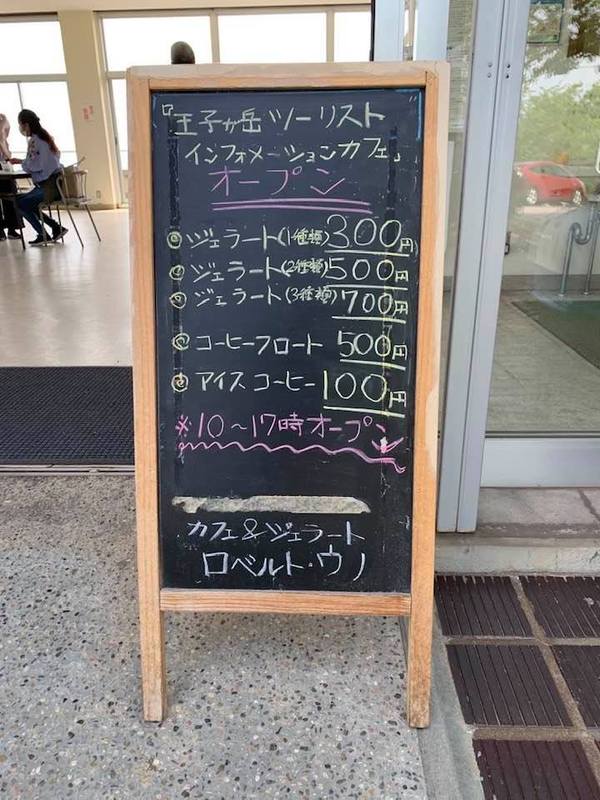 『王子が岳 ツーリスト
インフォメーションカフェ』
オープン
◎ ジェラート(1種類) 300円
◎ ジェラート(2種類) 500円
◎ ジェラート(3種類) 700円
◎ コーヒーフロート 500円
◎ アイスコーヒー 100円
※10〜17時オープン
カフェ&ジェラート
ロベルト・ウノ